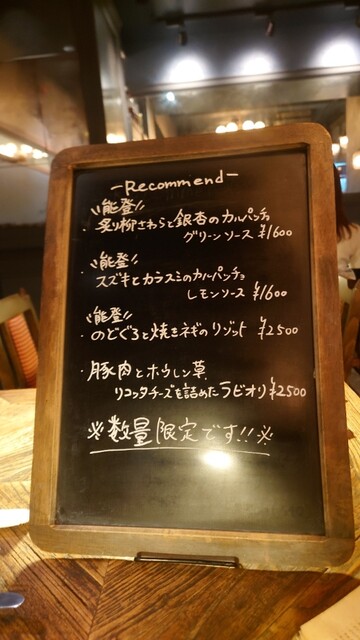 -Recommend-
\\能登//
・炙り柳さわらと銀杏のカルパッチョ
グリーンソース ¥1600
\\能登//
・スズキとカラスミのカルパッチョ
レモンソース ¥1600
\\能登//
・のどぐろと焼きネギのリゾット ¥2500
・豚肉とホウレン草
リコッタチーズを詰めたラビオリ ¥2500
※数量限定です!!※